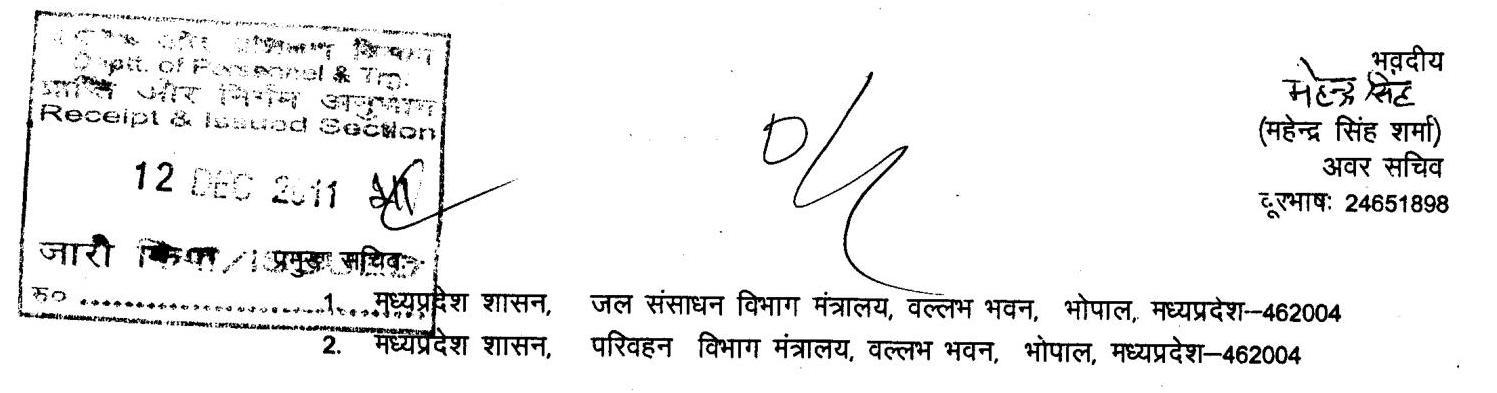 भवदीय
महेन्द्र सिंह
(महेन्द्र सिंह शर्मा)
अवर सचिव
दूरभाषः 24651898
और प्रशिक्षण विभाग
Deptt. of Personnel & Trg.
प्राप्ति और निर्गम अनुभाग
Receipt & Issued Section
12 DEC 2011
जारी किया / ISSUED
प्रमुख सचिवः
1. मध्यप्रदेश शासन, जल संसाधन विभाग मंत्रालय, वल्लभ भवन, भोपाल, मध्यप्रदेश–462004
2. मध्यप्रदेश शासन, परिवहन विभाग मंत्रालय, वल्लभ भवन, भोपाल, मध्यप्रदेश–462004